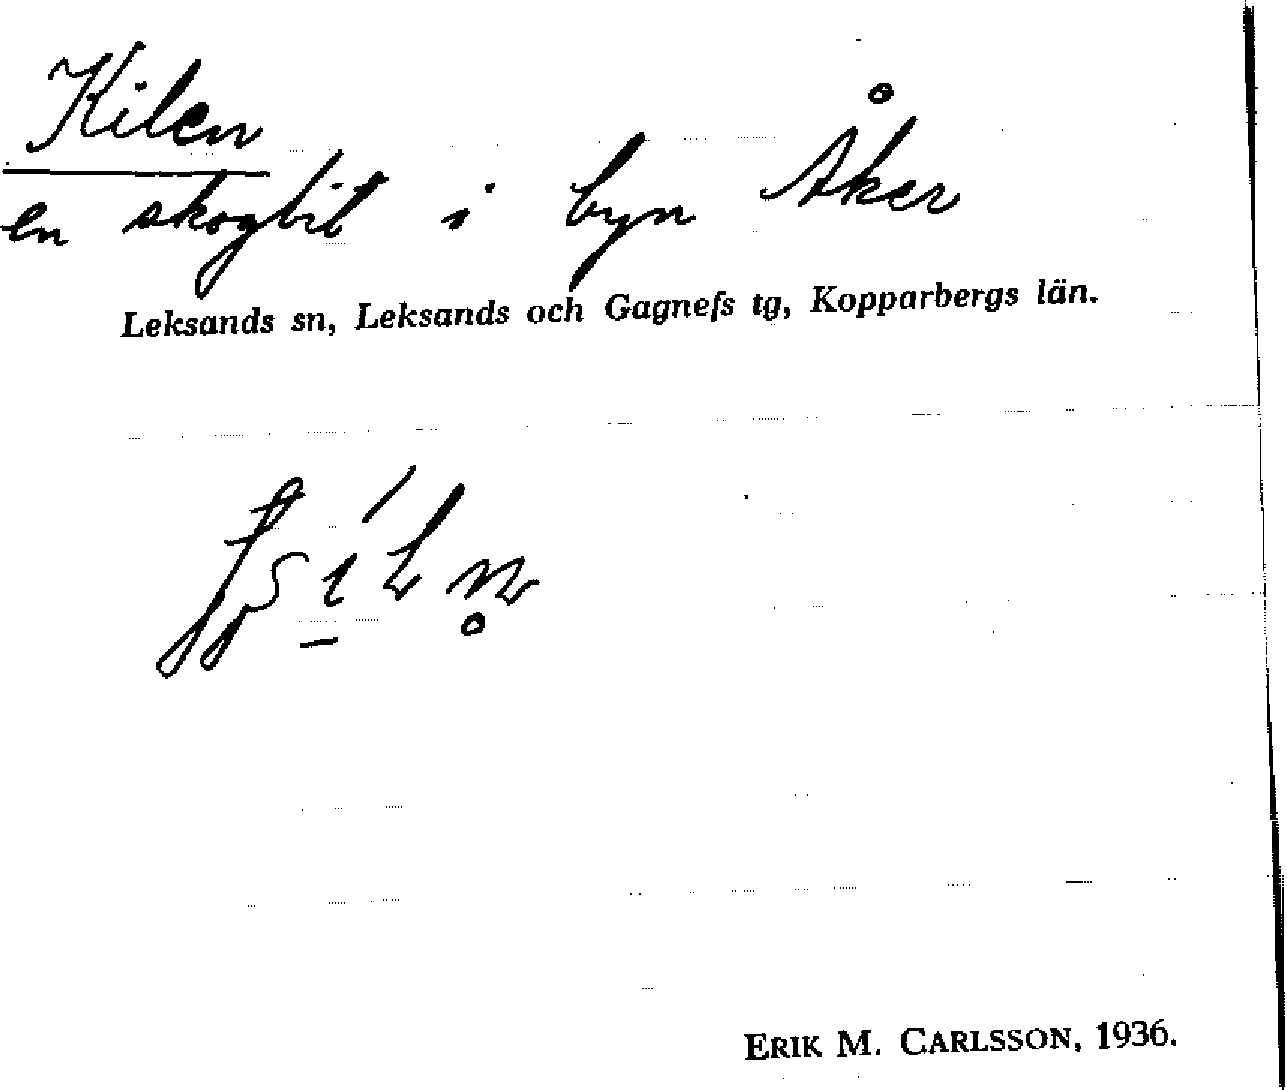 Kilen
en skogbit i byn Åker
Leksands sn, Leksands och Gagnefs tg, Kopparbergs län.
ERIK M. CARLSSON, 1936.